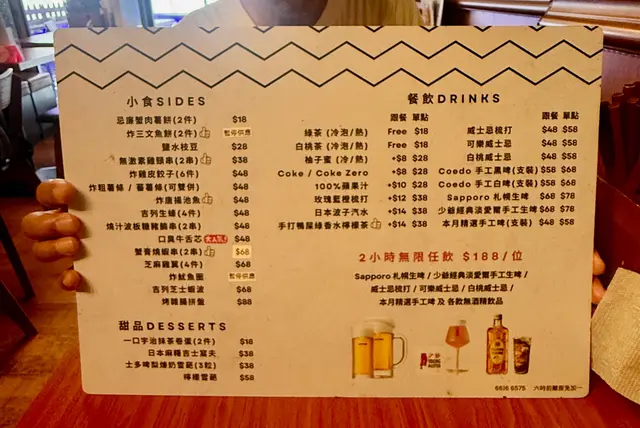 小食SIDES
忌廉蟹肉薯餅(2件) $18
炸三文魚餅(2件) 暫停供應
鹽水枝豆 $28
無激素雞頸串(2串) $38
炸雞皮餃子(6件) $48
炸粗薯條 / 蕃薯條(可雙併) $48
炸唐揚池魚 $48
吉列生蠔(4件) $48
燒汁波板糖豬腩串(2串) $48
口臭牛舌芯 $48
蟹膏燒蝦串(2串) $68
芝麻雞翼(4件) $68
炸魷魚圈 暫停供應
吉列芝士蝦波 $68
烤雜腸拼盤 $88
甜品DESSERTS
一口宇治抹茶卷蛋(2件) $18
日本麻糬吉士窩夫 $38
士多啤梨煉奶雪葩(3粒) $38
檸檬雪葩 $58
餐飲DRINKS
跟餐 單點
綠茶 (冷泡/熱) Free $18
白桃茶 (冷泡/熱) Free $18
柚子蜜 (冷/熱) +$8 $28
Coke / Coke Zero +$8 $28
100%蘋果汁 +$10 $28
玫瑰藍橙梳打 +$12 $38
日本波子汽水 +$14 $38
手打鴨屎綠香水檸檬茶 +$14 $38
跟餐 單點
威士忌梳打 $48 $58
可樂威士忌 $48 $58
白桃威士忌 $48 $58
Coedo 手工黑啤(支裝) $58 $68
Coedo 手工白啤(支裝) $58 $68
Sapporo 札幌生啤 $68 $78
少爺經典淡愛爾手工生啤 $68 $78
本月精選手工啤(支裝) $48 $58
2小時無限任飲 $188/位
Sapporo 札幌生啤 / 少爺經典淡愛爾手工生啤 /
威士忌梳打 / 可樂威士忌 / 白桃威士忌 /
本月精選手工啤 及 各款無酒精飲品
6616 6575 六時前離座免加一